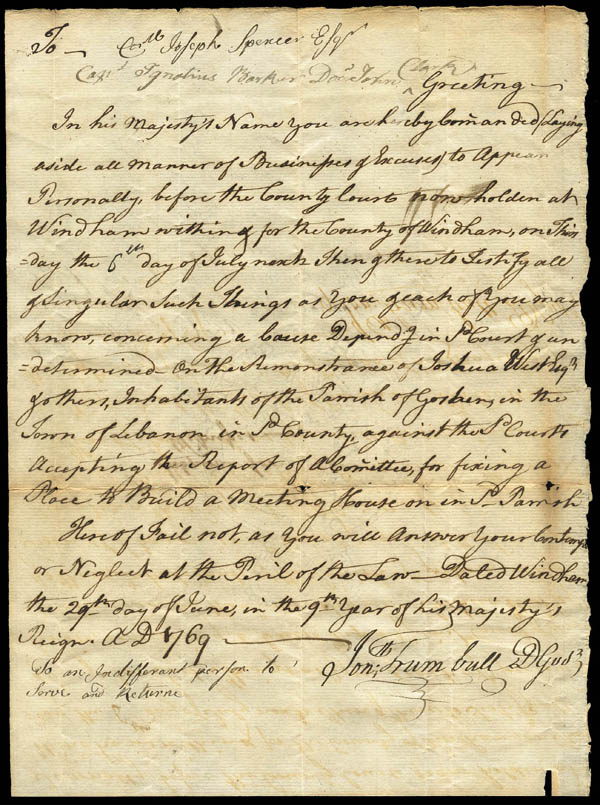 To – Cor^ll Joseph Spencer Esq^r
Cap^t Ignatius Barker Doc^r John ^ Clark Greeting –
In his Majesty's Name you are hereby Com̅anded (Laying
aside all manner of Businesses & Excuses) to Appear
Personally before the County Court now holden at
Windham within & for the County of Windham, on Thirs
=day the 6^th day of July next Then & there to Testify all
& Singular Such Things as You & each of You may
know, concerning a Cause Depend^g in s^d Court & un
=determined – On the Remonstrance of Joshua West Esq^r
& others, Inhabitants of the Parrish of Goshen, in the
Town of Lebanon in s^d County, against the s^d Courts
Accepting the Report of a Com̅ittee, for fixing a
Place to Build a Meeting House on in s^d Parrish
Hereof Fail not, as You will Answer Your Contempt
or Neglect at the Peril of the Law – Dated Windham
the 29^th day of June, in the 9^th Year of his Majesty's
Reign. A D 1769 –
Jon^th Trumbull D Gov^r
To an Indifferant person to
Serve and Returne